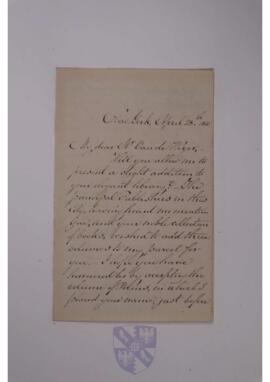 New York, April 28th
My dear Mr
Will you allow me to
present a slight addition to
your elegant library? The
principal Publishers in this
City, having heard me mention
you, and your noble collection
of books, wished to add these
volumes to my parcel for
you. I hope you have
honoured me by accepting the
volume of Poems, in which I
your name, just before